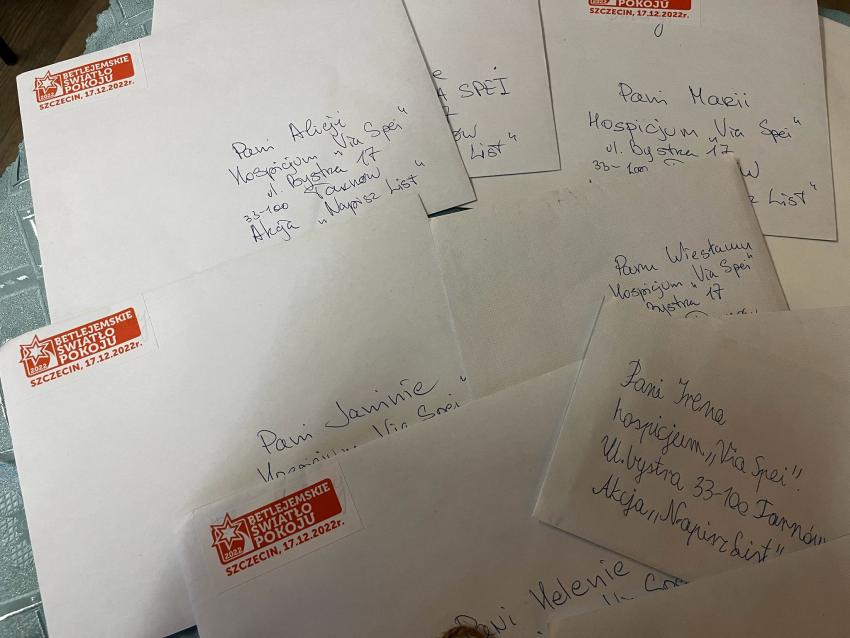 2022
BETLEJEMSKIE
ŚWIATŁO
POKOJU
SZCZECIN, 17.12.2022r.
Pani Alicji
Hospicjum "Via Spei"
ul. Bystra 17
33-100 Tarnów
Akcja "Napisz List"
A SPEI
List"
POKOJU
SZCZECIN, 17.12.2022r.
Pani Marii
Hospicjum "Via Spei"
ul. Bystra 17
33-100
List"
2022
BETLEJEMSKIE
ŚWIATŁO
POKOJU
SZCZECIN, 17.12.2022r.
Pani Janinie
Hospicjum "Via Spei"
Panu Wiesławu
Hospicjum "Via Spei"
Bystra 17
Pani Irena
hospicjum,,Via Spei".
Ul.bystra 33-100 Tarnów
Akcja,,Napisz List"
2022
BETLEJEMSKIE
ŚWIATŁO
POKOJU
SZCZECIN, 17.12.2022r.
Pani Helenie